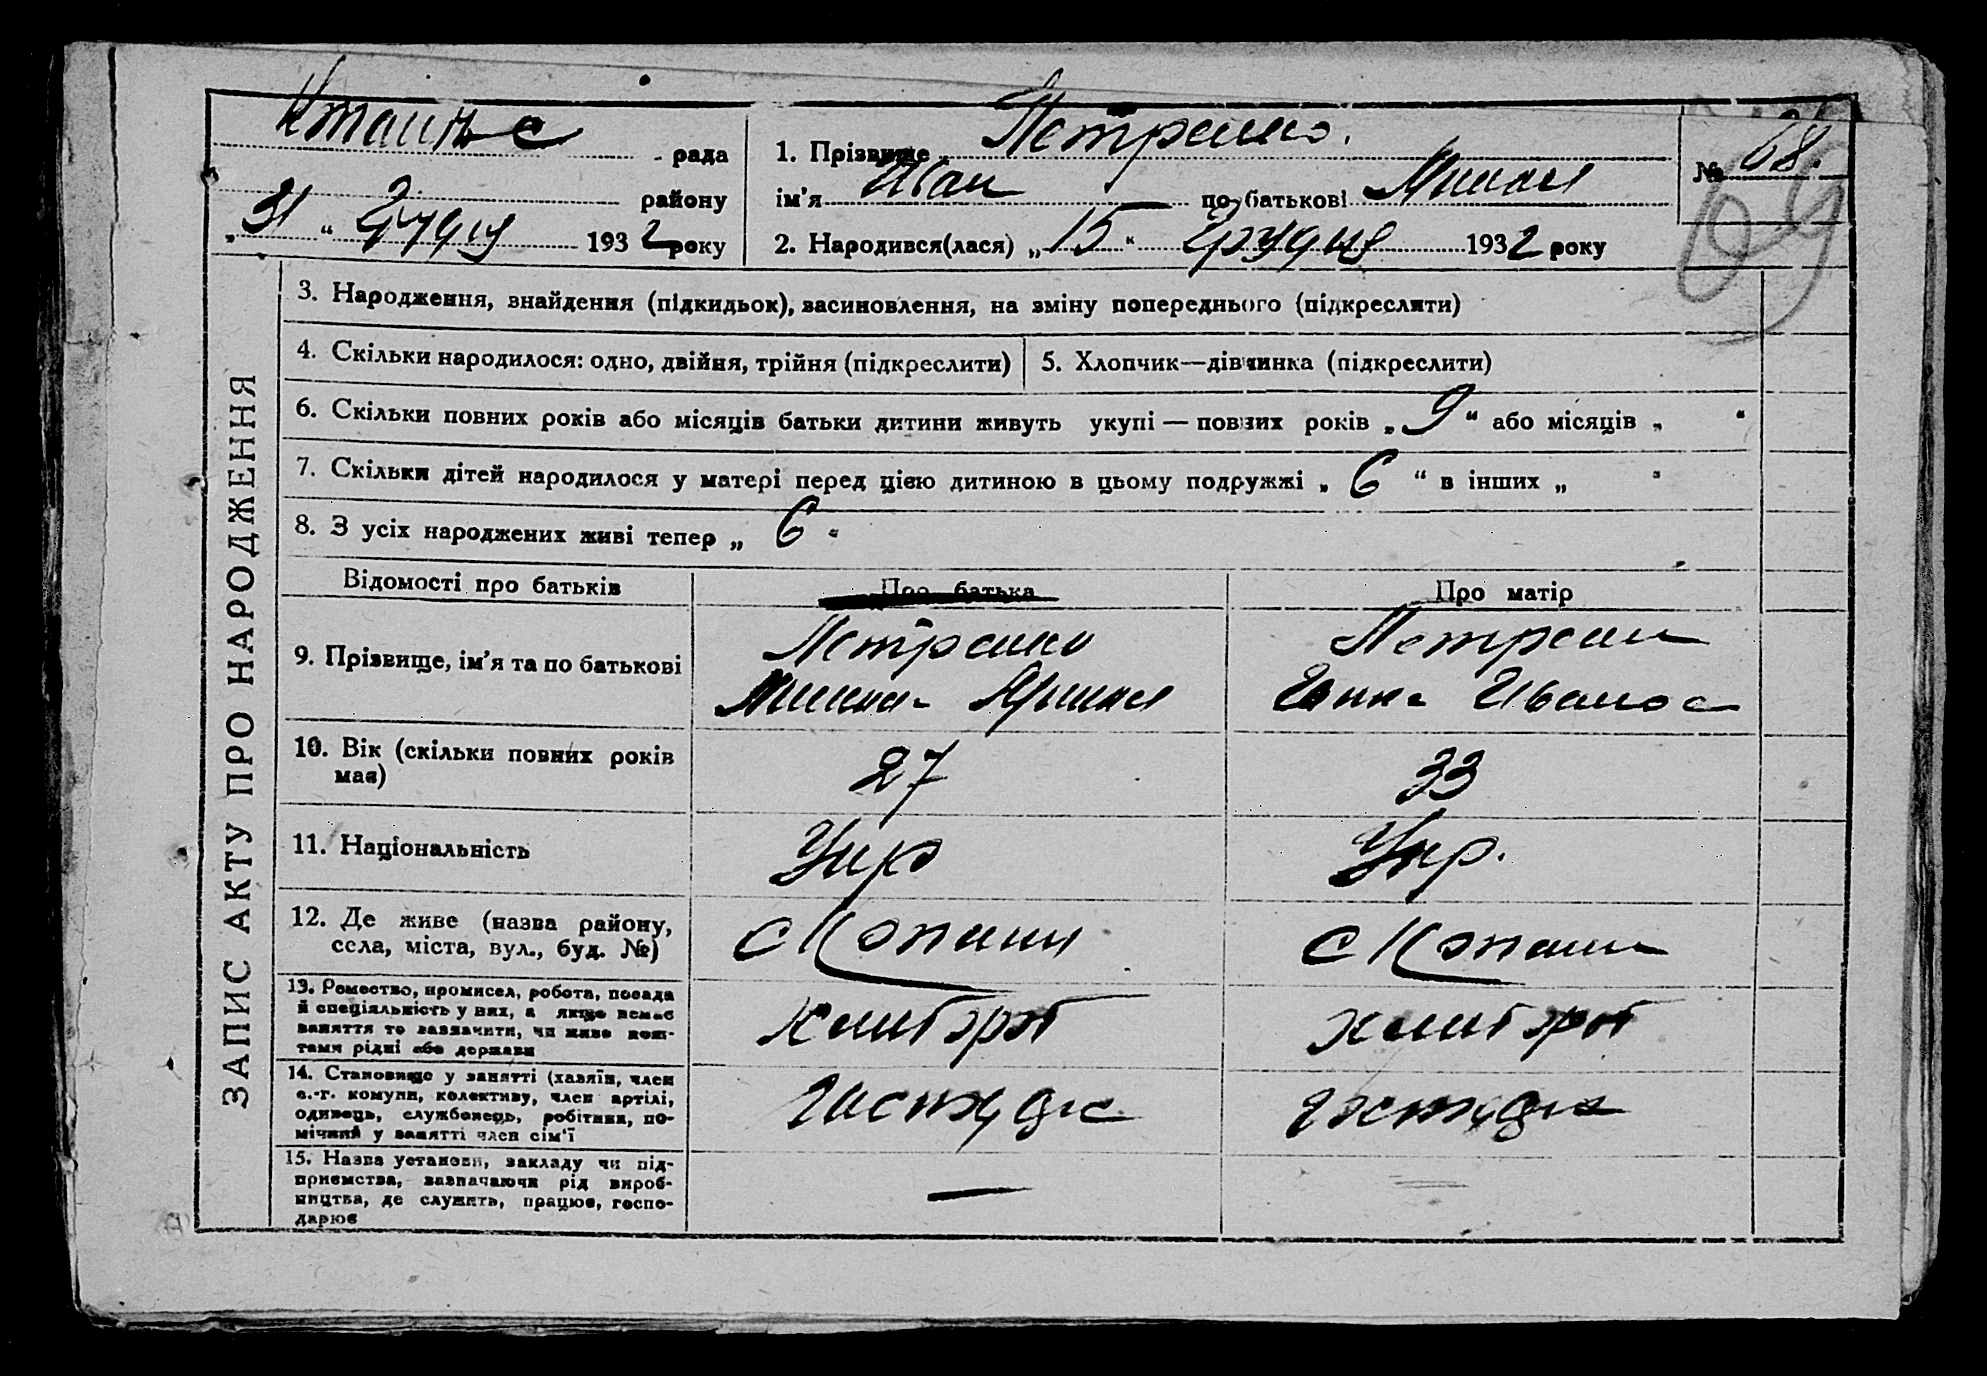 рада
1. Прізвище Петренко.
№ 68.
району
ім'я Іван по батькові Михайл
69
„31“ Грудня 1932 року
2. Народився(лася) „15“ Грудня 1932 року
ЗАПИС АКТУ ПРО НАРОДЖЕННЯ
3. Народження, знайдення (підкидьок), засиновлення, на зміну попереднього (підкреслити)
4. Скільки народилося: одно, двійня, трійня (підкреслити)
5. Хлопчик—дівчинка (підкреслити)
6. Скільки повних років або місяців батьки дитини живуть укупі — повних років „9“ або місяців „ “
7. Скільки дітей народилося у матері перед цією дитиною в цьому подружжі „6“ в інших „ “
8. З усіх народжених живі тепер „6“
Відомості про батьків
Про батька
Про матір
9. Прізвище, ім'я та по батькові
Петренко
Петренк
Ганна Іванов
10. Вік (скільки повних років
має)
27
33
11. Національність
Укр
Укр.
12. Де живе (назва району,
села, міста, вул., буд. №)
с Копани
с Копани
13. Ремество, промисел, робота, посада
й спеціяльність у них, а якщо немає
заняття то зазначити, чи живе кош-
тами рідні або держави
хлібороб
хлібороб
14. Становище у занятті (хазяїн, член
с.-г. комуни, колективу, член артілі,
одинець, службовець, робітник, по-
мічний у занятті член сім'ї
15. Назва установи, закладу чи під-
приємства, зазначаючи рід вироб-
ництва, де служить, працює, госпо-
дарює
—